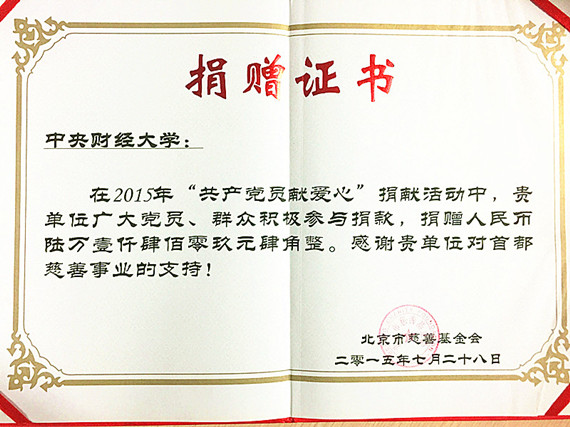 捐赠证书
中央财经大学：
在2015年“共产党员献爱心”捐献活动中，贵
单位广大党员、群众积极参与捐款，捐赠人民币
陆万壹仟肆佰零玖元肆角整。感谢贵单位对首都
慈善事业的支持！
北京市慈善基金会
二零一五年七月二十八日